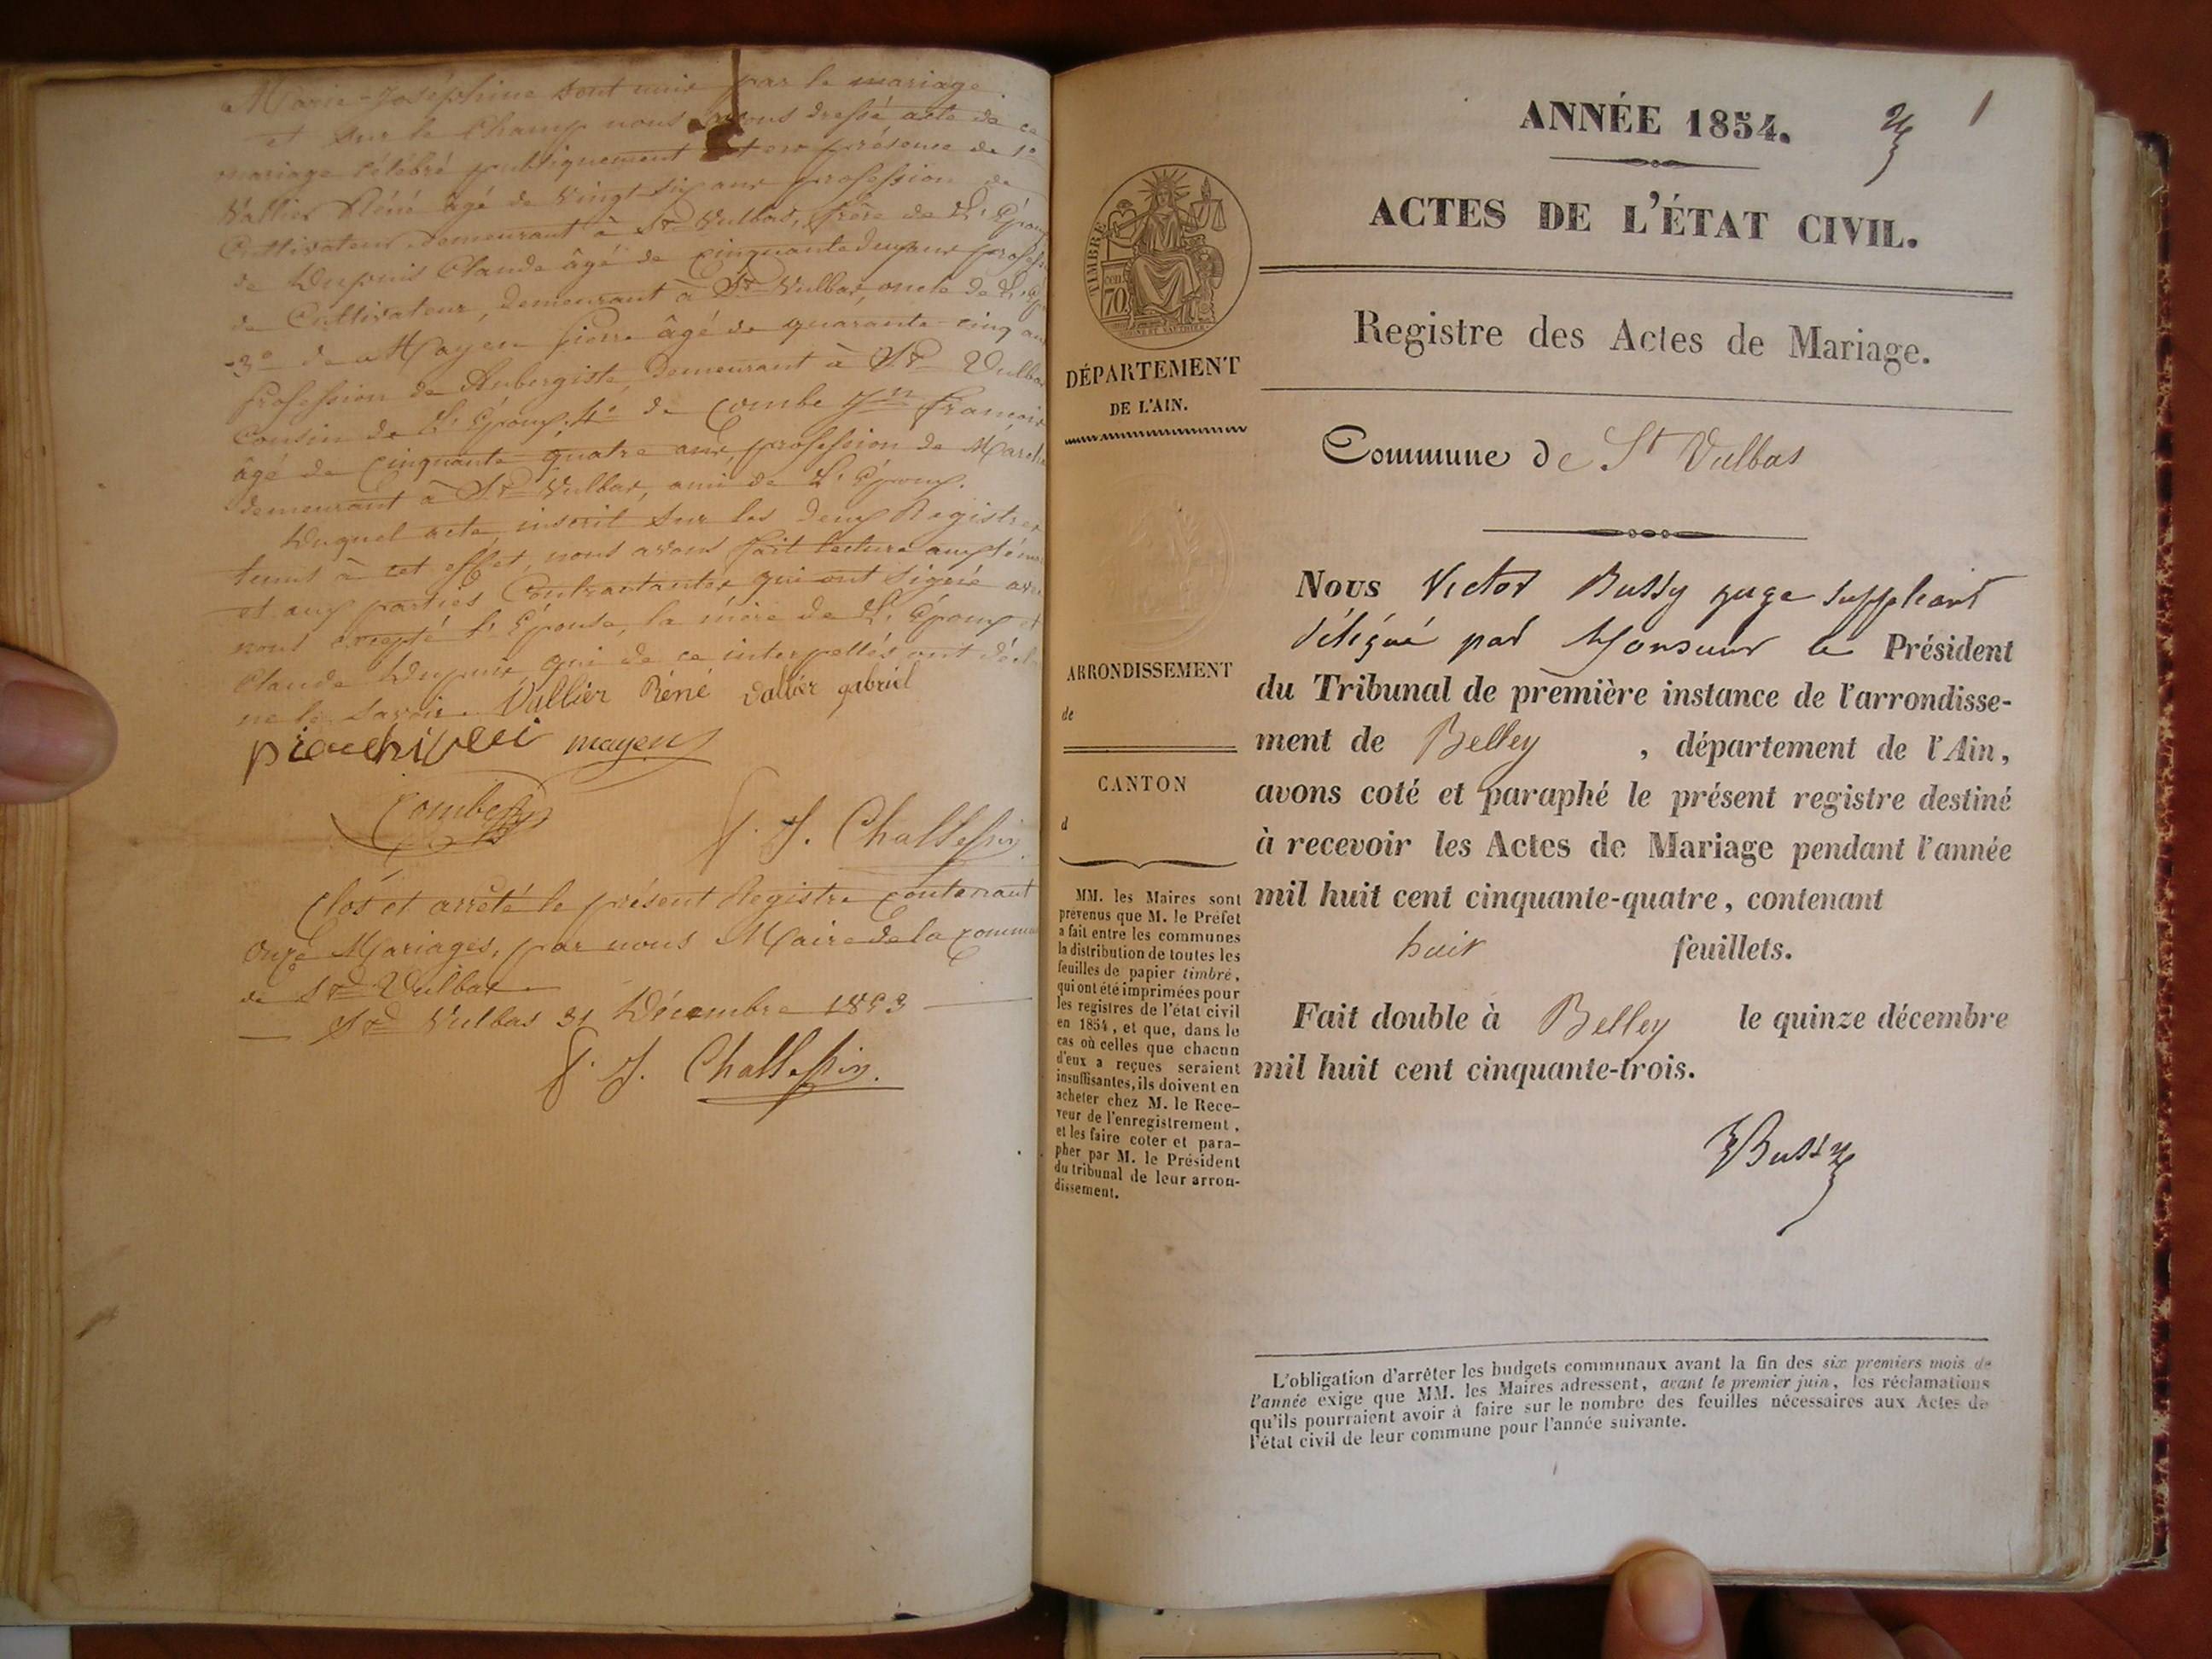 Marie-Joséphine sont unis par le mariage.
et sur le champ nous avons dressé acte de ce
mariage célébré publiquement et en présence de 1º
Vallier Réné âgé de vingt six ans profession de
Cultivateur demeurant à St Vulbas, frère de L'Époux
de Dupuis Claude âgé de cinquante deux ans profess
de Cultivateur, demeurant à St Vulbas, oncle de L'
3º de Mayen pierre âgé de quarante cinq ans
profession de Aubergiste, demeurant à St Vulbas
Cousin de L'Époux. 4º de Combe Jn François
âgé de Cinquante quatre ans, profession de Maréch
demeurant à St Vulbas, ami de L'Époux.
Duquel acte, inscrit sur les deux Registres
tenus à cet effet, nous avons fait lecture aux témoi
et aux parties Contractantes qui ont signé avec
nous excepté L'Épouse, la mère de L'Époux et
Claude Dupuis, qui de ce interpellés ont décl
ne le savoir. Vallier Réné vallier gabriel
mayen
Combe
J. J. Challessin
Clos et arrêté le présent Registre contenant
onze Mariages, par nous Maire de la commune
de St Vulbas
St Vulbas 31 Décembre 1853
J. J. Challessin.
ANNÉE 1854.
1
ACTES DE L'ÉTAT CIVIL.
TIMBRE
70
Registre des Actes de Mariage.
DÉPARTEMENT
DE L'AIN.
Commune de St Vulbas
Nous Victor Bussy juge suppléant
délégué par Monsieur le Président
du Tribunal de première instance de l'arrondisse-
ment de Belley, département de l'Ain,
avons coté et paraphé le présent registre destiné
à recevoir les Actes de Mariage pendant l'année
mil huit cent cinquante-quatre, contenant
huit feuillets.
Fait double à Belley le quinze décembre
mil huit cent cinquante-trois.
Bussy
ARRONDISSEMENT
de
CANTON
d
MM. les Maires sont
prévenus que M. le Préfet
a fait entre les communes
la distribution de toutes les
feuilles de papier timbré,
qui ont été imprimées pour
les registres de l'état civil
en 1854, et que, dans le
cas où celles que chacun
d'eux a reçues seraient
insuffisantes, ils doivent en
acheter chez M. le Rece-
veur de l'enregistrement,
et les faire coter et para-
pher par M. le Président
du tribunal de leur arron-
dissement.
L'obligation d'arrêter les budgets communaux avant la fin des six premiers mois de
l'année exige que MM. les Maires adressent, avant le premier juin, les réclamations
qu'ils pourraient avoir à faire sur le nombre des feuilles nécessaires aux Actes de
l'état civil de leur commune pour l'année suivante.